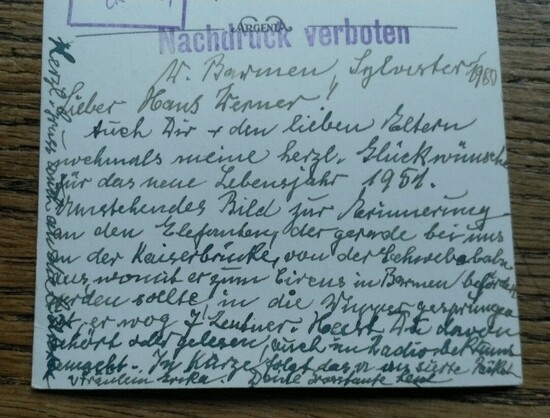 ARGENTA
Nachdruck verboten
W. Barmen, Sylvester
Lieber Hans Werner!
Auch Dir + den lieben Eltern
nochmals meine herzl. Glückwünsche
für das neue Lebensjahr 1951.
Umstehendes Bild zur Erinnerung
an den Elefanten, der gerade bei uns
an der Kaiserbrücke, von der Schwebebahn
aus, womit er zum Circus in Barmen beförder
werden sollte, in die Wupper gesprungen
ist, er wog 7 Zentner. Hast Du davon
gehört oder gelesen, auch im Radio
gemacht. In Kürze folgt das
Fräulein Erika. Deine
Herzl.